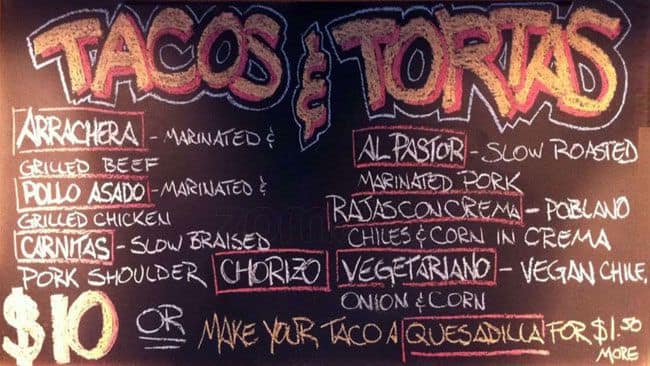 TACOS & TORTAS
ARRACHERA - MARINATED &
GRILLED BEEF
POLLO ASADO - MARINATED &
GRILLED CHICKEN
CARNITAS - SLOW BRAISED
PORK SHOULDER
CHORIZO
AL PASTOR - SLOW ROASTED
MARINATED PORK
RAJAS CON CREMA - POBLANO
CHILES & CORN IN CREMA
VEGETARIANO - VEGAN CHILE,
ONION & CORN
$10 OR MAKE YOUR TACO A QUESADILLA FOR $1.50
MORE